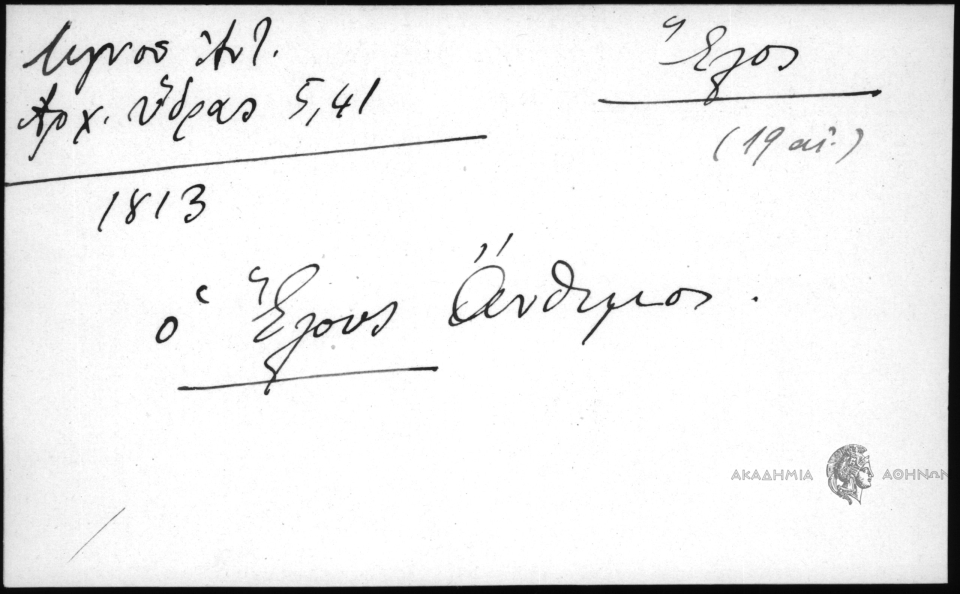 Λιγνος Ἀντ.
Ἀρχ. Ὕδρας 5,41
Ἕλος
(19 αἰ.)
1813
ὁ Ἕλους Ἄνθιμος.
ΑΚΑΔΗΜΙΑ ΑΘΗΝΩΝ